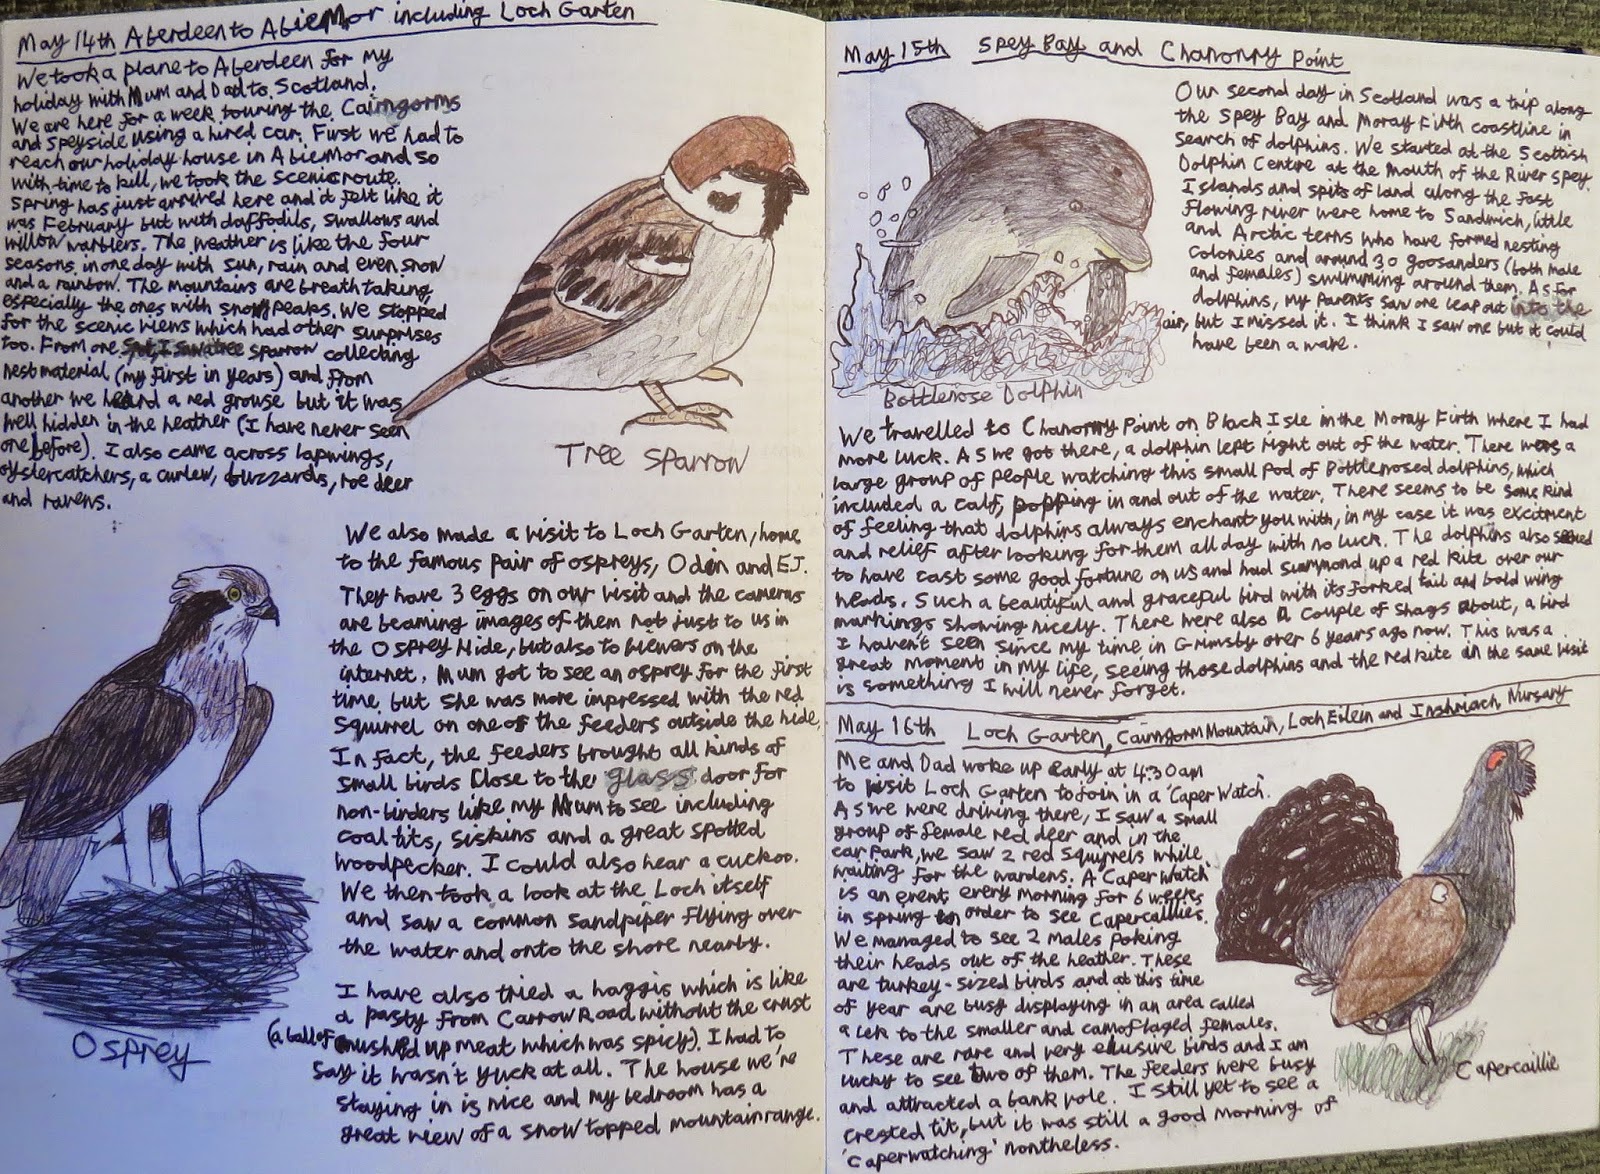 May 14th Aberdeen to AbieMor including Loch Garten
We took a plane to Aberdeen for my
holiday with Mum and Dad to Scotland.
We are here for a week touring the Cairngorms
and Speyside using a hired car. First we had to
reach our holiday house in AbieMor and so
with time to kill, we took the scenic route.
Spring has just arrived here and it felt like it
was February but with daffodils, swallows and
willow warblers. The weather is like the four
seasons in one day with sun, rain and even snow
and a rainbow. The mountains are breathtaking,
especially the ones with snow peaks. We stopped
for the scenic views which had other surprises
too. From one spot, I saw tree sparrow collecting
nest material (my first in years) and from
another we heard a red grouse but it was
well hidden in the heather (I have never seen
one before). I also came across lapwings,
oystercatchers, a curlew, buzzards, roe deer
and ravens.
Tree sparrow
We also made a visit to Loch Garten, home
to the famous pair of ospreys, Odin and EJ.
They have 3 eggs on our visit and the cameras
are beaming images of them not just to us in
the Osprey Hide, but also to viewers on the
internet. Mum got to see an osprey for the first
time but she was more impressed with the red
squirrel on one of the feeders outside the hide.
In fact, the feeders brought all kinds of
small birds close to the glass door for
non-birders like my Mum to see including
coal tits, siskins and a great spotted
woodpecker. I could also hear a cuckoo.
We then took a look at the Loch itself
and saw a common sandpiper flying over
the water and onto the shore nearby.
Osprey
I have also tried a haggis which is like
a pasty from Carrow Road without the crust
(a ball of mushed up meat which was spicy). I had to
say it wasn't yuck at all. The house we're
staying in is nice and my bedroom has a
great view of a snow topped mountain range.
May 15th Spey Bay and Chanonry Point
Our second day in Scotland was a trip along
the Spey Bay and Moray Firth coastline in
search of dolphins. We started at the Scottish
Dolphin Centre at the mouth of the River Spey.
Islands and spits of land along the fast
flowing river were home to Sandwich, little
and Arctic terns who have formed nesting
colonies and around 30 goosanders (both male
and females) swimming around them. As for
dolphins, my parents saw one leap out into the
air, but I missed it. I think I saw one but it could
have been a wave.
Bottlenose Dolphin
We travelled to Chanonry Point on Black Isle in the Moray Firth where I had
more luck. As we got there, a dolphin left right out of the water. There were a
large group of people watching this small pod of Bottlenosed dolphins, which
included a calf, popping in and out of the water. There seems to be some kind
of feeling that dolphins always enchant you with, in my case it was excitment
and relief after looking for them all day with no luck. The dolphins also
to have cast some good fortune on us and had summond up a red kite over our
heads. Such a beautiful and graceful bird with its forked tail and bold wing
markings showing nicely. There were also a couple of shags about, a bird
I haven't seen since my time in Grimsby over 6 years ago now. This was a
great moment in my life, seeing those dolphins and the red kite in the same visit
is something I will never forget.
May 16th Loch Garten, Cairngorm Mountain, Loch Eilein and Inshriach Nursary
Me and Dad woke up early at 4:30am
to visit Loch Garten to join in a 'Caper Watch'.
As we were driving there, I saw a small
group of female red deer and in the
car park, we saw 2 red squirrels while
waiting for the wardens. A Caper Watch
is an event every morning for 6 weeks
in spring in order to see Capercaillies.
We managed to see 2 males poking
their heads out of the heather. These
are turkey-sized birds and at this time
of year are busy displaying in an area called
a lek to the smaller and camoflaged females.
These are rare and very elusive birds and I am
lucky to see two of them. The feeders were busy
and attracted a bank vole. I still yet to see a
crested tit, but it was still a good morning of
'caperwatching' nontheless.
Capercaillie